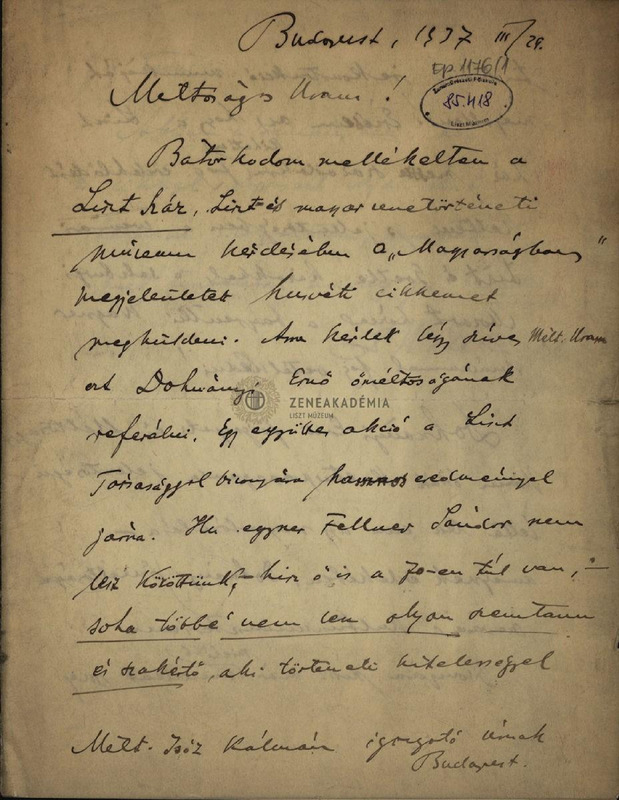 Budapest, 1937 III/29.
Ep 1176/1
85.418
Méltóságos Uram!
Bátorkodom mellékelten a
Liszt ház, Liszt és magyar zenetörténeti
múzeum kérdésében a „Magyarságban"
megjelentetett husvéti cikkemet
megküldeni. Arra kérlek légy szíves Mélt. Uram
ezt Dohnányi Ernő őméltóságának
ZENEAKADÉMIA
LISZT MÚZEUM
referálni. Egy együttes akció a Liszt
Társasággal bizonyára hamar eredménnyel
járna. Ha egyszer Fellner Sándor nem
lesz közöttünk, – hisz ő is a 70-en túl van, –
soha többé nem lesz olyan szemtanu
és szakértő, aki történeti hitelességgel
Mélt. Isóz Kálmán igazgató úrnak
Budapest.